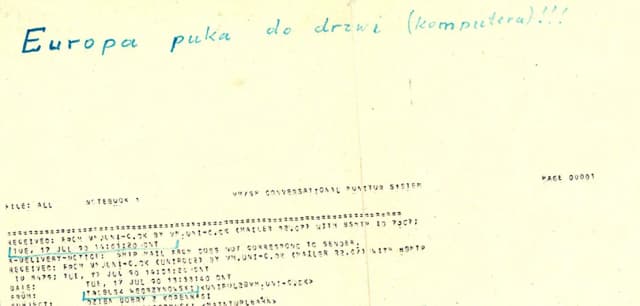 Europa puka do drzwi (komputera)!!!
FILE: ALL NOTEBOOK 1 VM/SP CONVERSATIONAL MONITOR SYSTEM PAGE 00001
RECEIVED: FROM VM.UNI-C.DK BY VM.UNI-C.DK (MAILER R2.07) WITH BSMTP ID
TUE, 17 JUL 90 14:03:20 GMT
X-DELIVERY-NOTICE: SMTP MAIL FROM DOES NOT CORRESPOND TO SENDER.
RECEIVED: FROM VM.UNI-C.DK (UNIPOL2) BY VM.UNI-C.DK (MAILER R2.07) WITH BSMTP
ID 9479; TUE, 17 JUL 90 14:03:20 GMT
DATE: TUE, 17 JUL 90 GMT
FROM: <UNIPOL2@VM.UNI-C.DK>
SUBJECT: DZIEN DOBRY Z KOPENHAGI